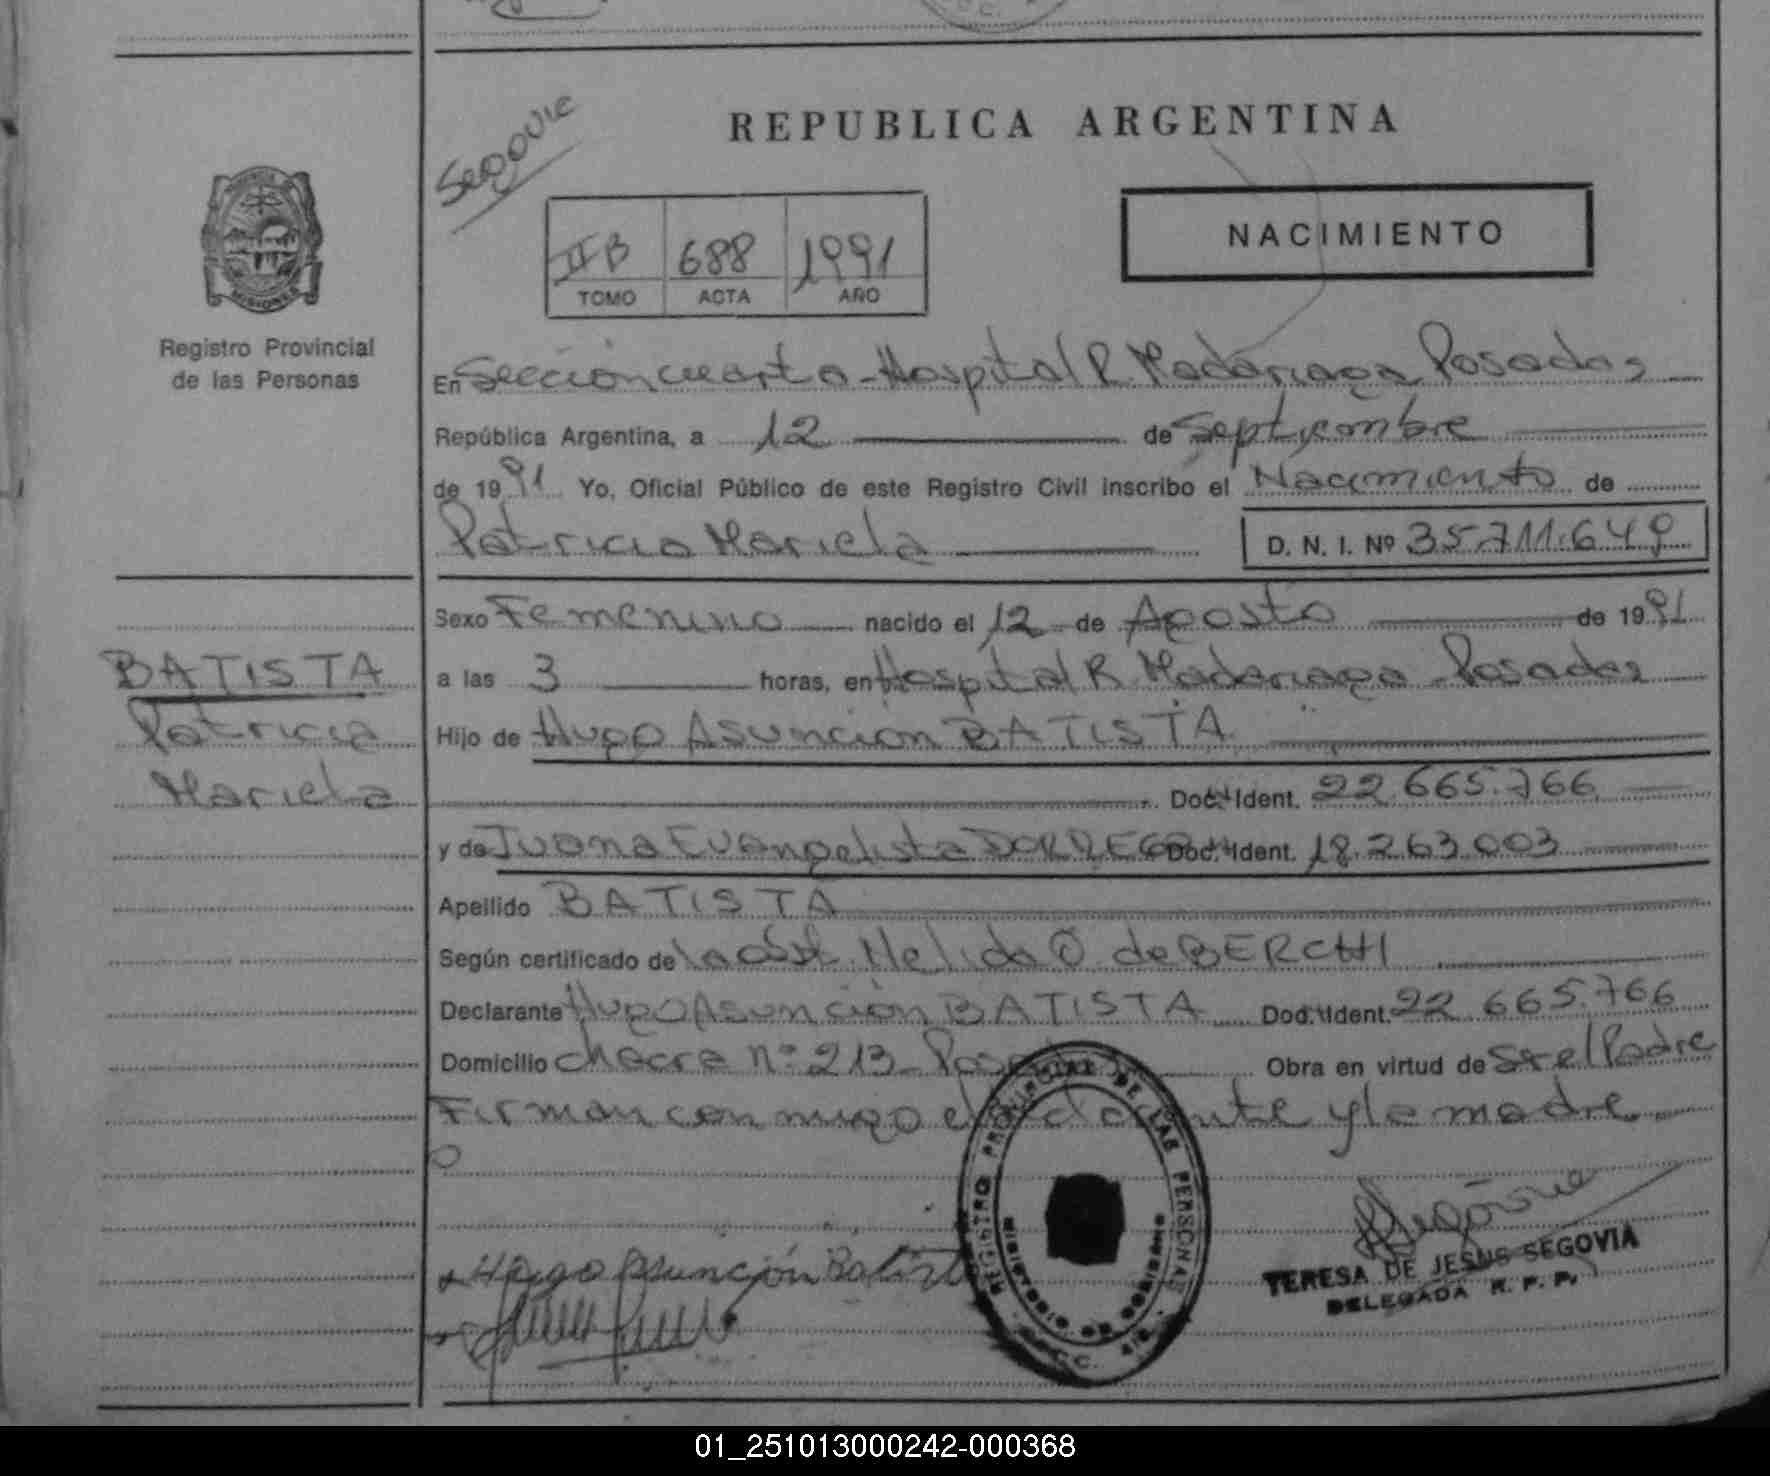 Segovie
REPUBLICA ARGENTINA
NACIMIENTO
II B 688 1991
TOMO ACTA AÑO
MISIONES
Registro Provincial
de las Personas
En Sección cuarta - Hospital R. Madariaga Posadas
República Argentina, a 12 de Septiembre
de 1991 Yo, Oficial Público de este Registro Civil inscribo el Nacimiento de
Patricia Mariela D. N. I. Nº 35.711.649
Sexo Femenino nacido el 12 de Agosto de 1991
BATISTA
Patricia
Mariela
a las 3 horas, en Hospital R. Madariaga Posadas
Hijo de Hugo Asunción BATISTA
Doc. Ident. 22.665.766
y de Juana Evangelista DORREGO Doc. Ident. 18.263.003
Apellido BATISTA
Según certificado de la obst. Nelida O. de BERCHI
Declarante Hugo Asunción BATISTA Doc. Ident. 22.665.766
Domicilio chacra nº 213 - Obra en virtud de Ser el Padre
Firman con migo el y la madre
Hugo Asunción Batista
REGISTRO PROVINCIAL DE LAS PERSONAS
TERESA DE JESUS SEGOVIA
DELEGADA R. P. P.
01_251013000242-000368